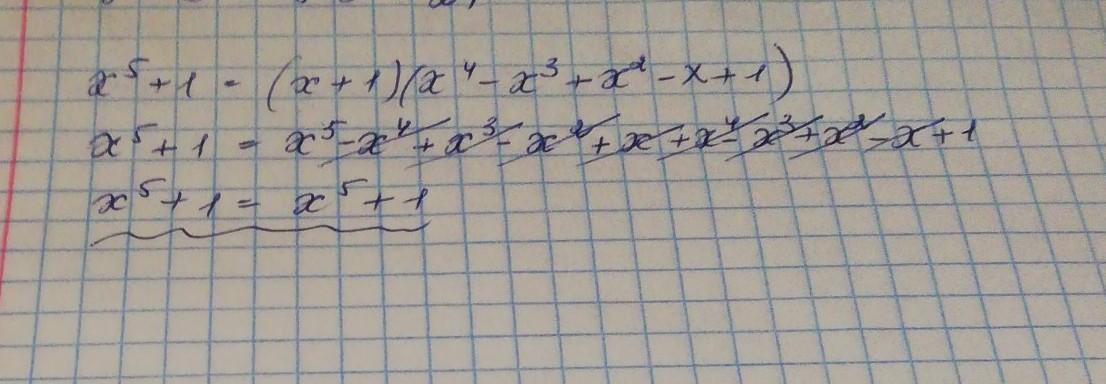 x⁵+1 = (x+1)(x⁴-x³+x²-x+1)
x⁵+1 = x⁵-x⁴+x³-x²+x+x⁴-x³+x²-x+1
x⁵+1 = x⁵+1